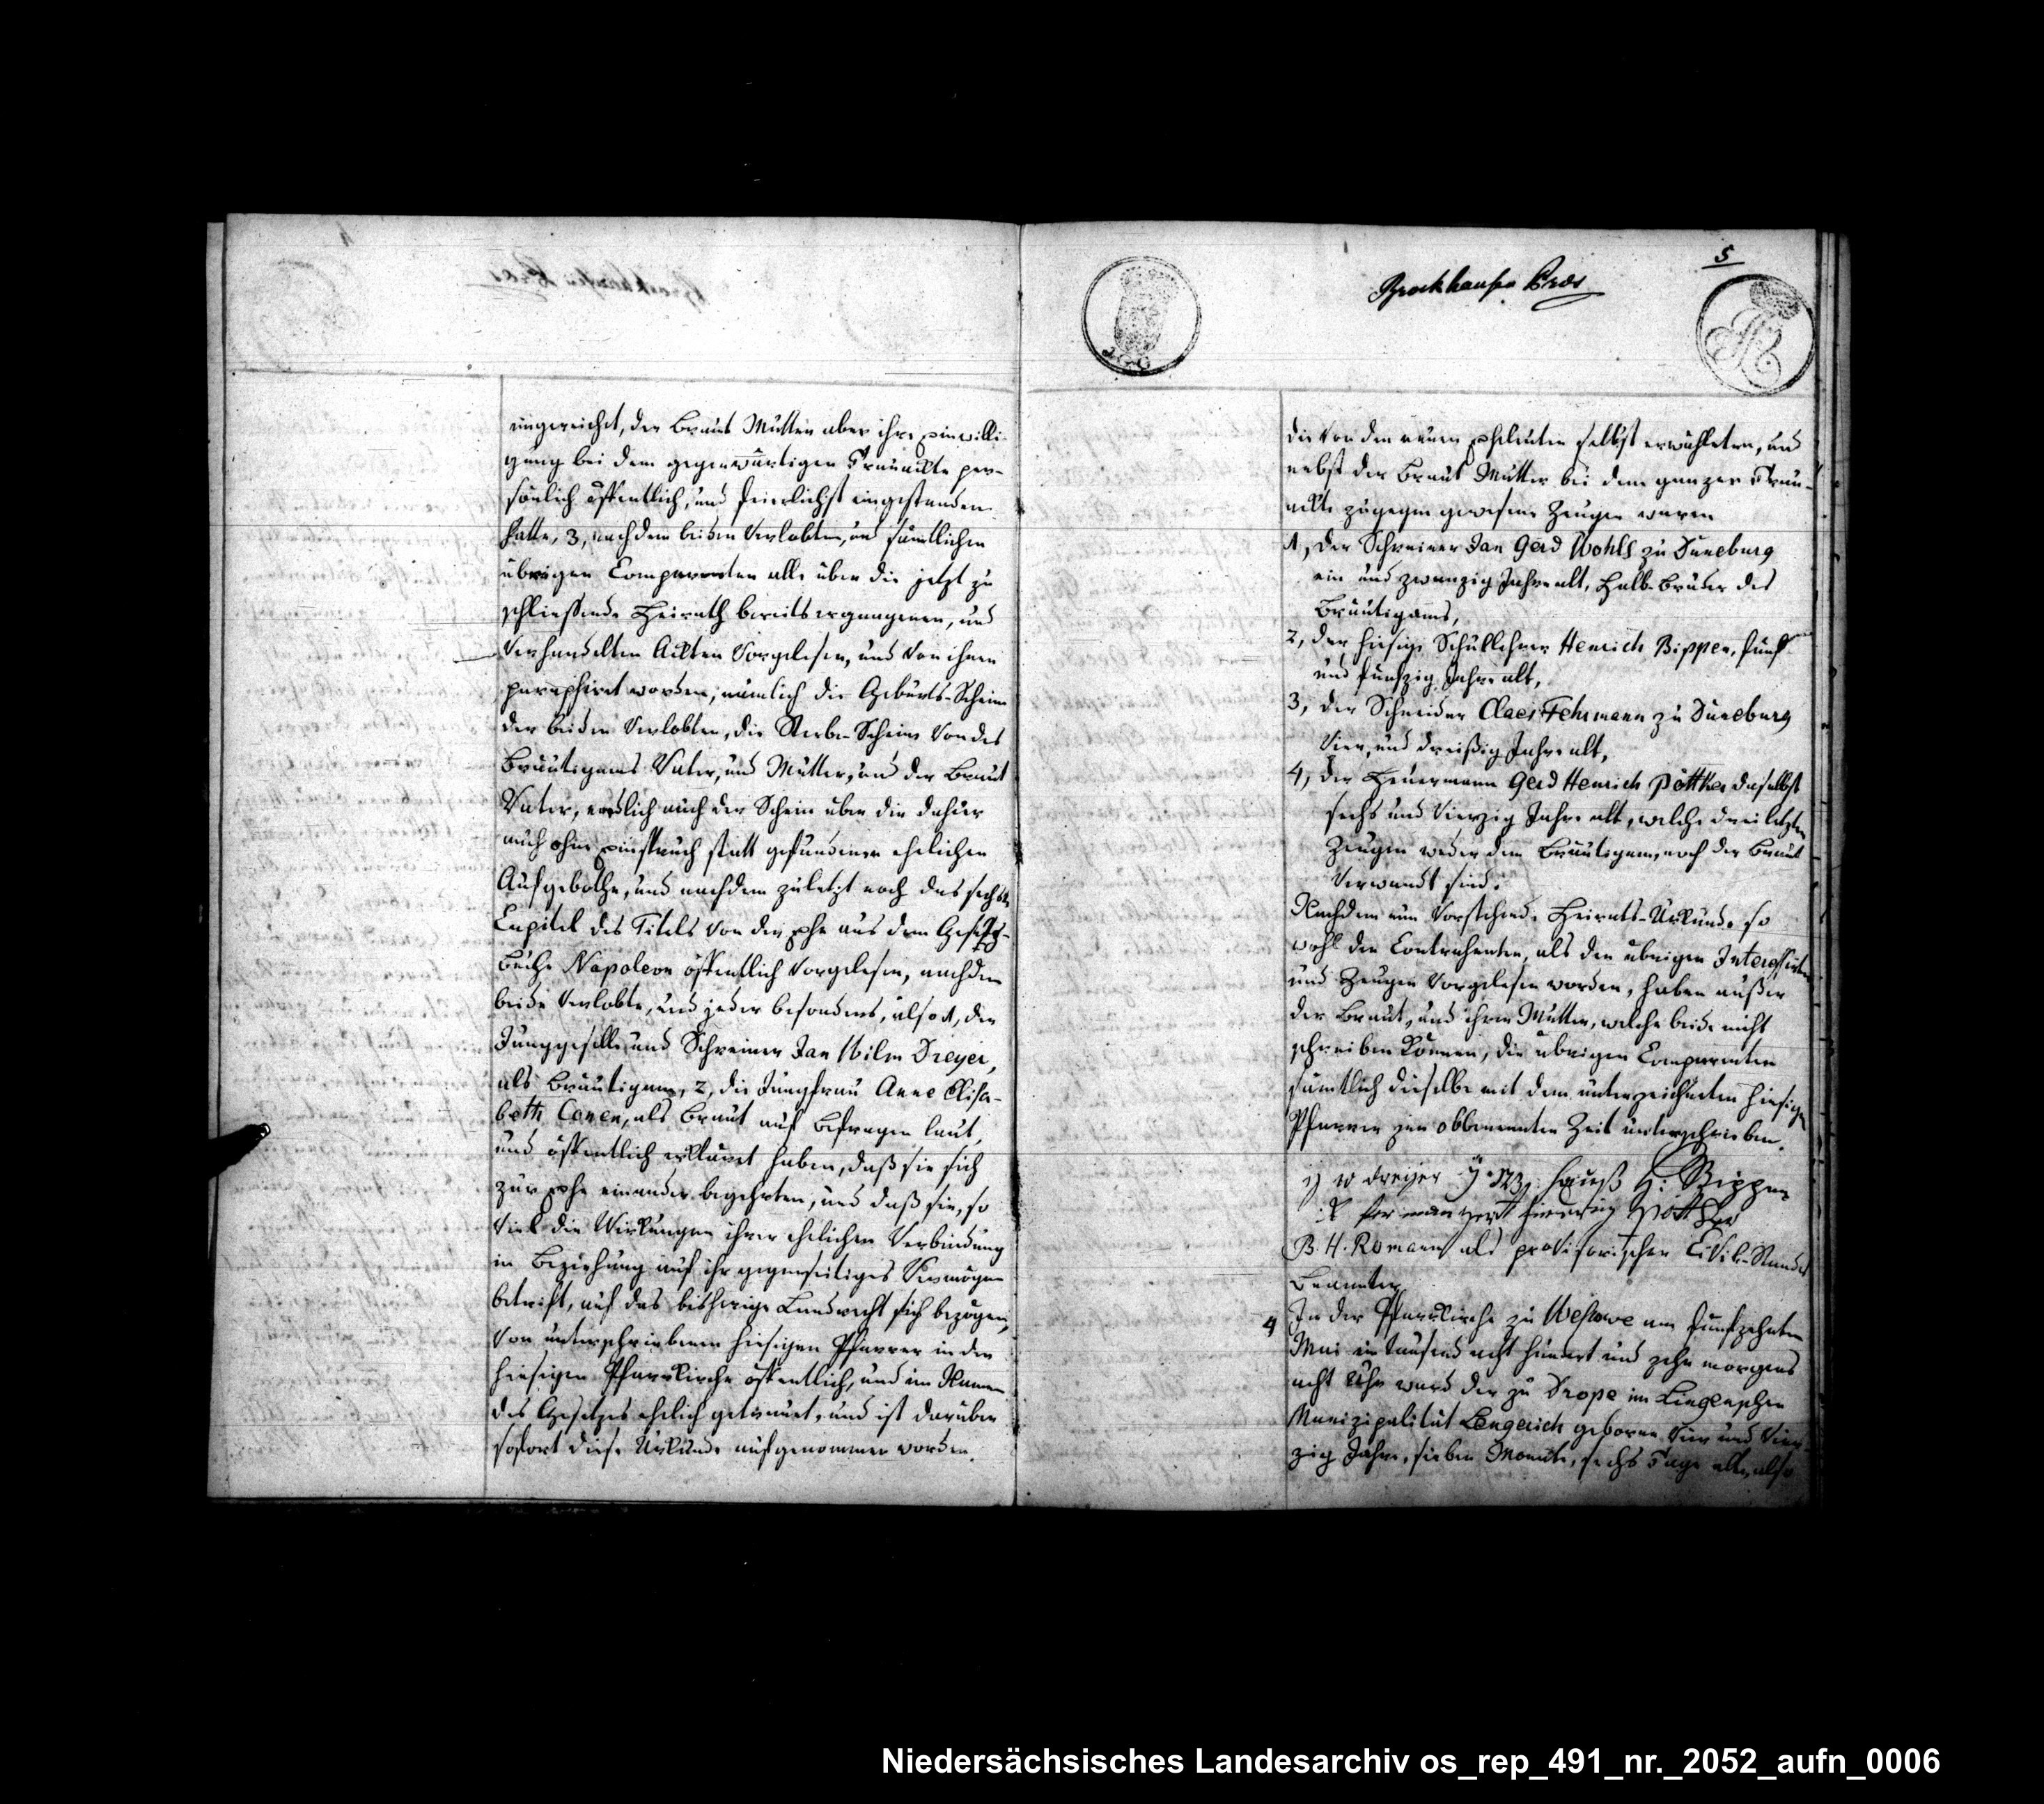 eingereicht, der Braut Mutter aber ihre Einwilli-
gung bei dem gegenwärtigen Trauackte per-
sönlich öffentlich, und feierlichst eingestanden
hatte, 3, nachdem beiden Verlobten, und sämtlichen
übrigen Comparenten alle über die jetzt zu
schliessende Heirath bereits ergangenen, und
verhandelten Ackten vorgelesen, und von ihnen
paraphiret worden, nämlich die Geburts-Scheine
der beiden Verlobten, die Sterbe-Scheine von des
Bräutigams Vater, und Mutter, und der Braut
Vater, endlich auch der Schein über die dahier
auch ohne Einspruch statt gefundenen ehelichen
Aufgebothe, und nachdem zuletzt noch das sechste
Capitel des Titels von der Ehe aus dem Gesetz-
buche Napoleon öffentlich vorgelesen, nachdem
beide Verlobte, und jeder besonders, also 1, der
Junggeselle und Schreiner Jan Wilm Dreyer,
als Bräutigam, 2, die Jungfrau Anne Elisa-
beth Conen, als Braut auf Befragen laut,
und öffentlich erkläret haben, daß sie sich
zur Ehe einander begehrten, und daß sie, so
viel die Wirkungen ihrer ehelichen Verbindung
in Beziehung auf ihr gegenseitiges Vermögen
betrift, auf das bisherige Landrecht sich bezögen,
von unterschriebenem hiesigen Pfarrer in der
hiesigen Pfarrkirche öffentlich, und im Namen
des Gesetzes ehelich getrauet, und ist darüber
sofort diese Urkunde aufgenommen worden.
5
Brockhausen
die von den neuen Eheleuten selbst erwählten, und
nebst der Braut Mutter bei dem ganzen Trau-
ackte zugegen gewesene Zeugen waren
1, der Schreiner Jan Gerd Wohls zu Suneburg
ein und zwanzig Jahre alt, Halb-Bruder des
Bräutigams,
2, der hiesige Schullehrer Henrich Bippen, fünf
und funfzig Jahre alt,
3, der Schneider Claes Fehrmann zu Suneburg
vier, und dreißig Jahre alt,
4, der Heuermann Gerd Henrich Pöttker daselbst
sechs und vierzig Jahre alt, welche drei letzten
Zeugen weder dem Bräutigam, noch der Braut
verwandt sind.
Nachdem nun vorstehende Heirats-Urkunde so
wohl den Contrahenten, als den übrigen Interessirten
und Zeugen vorgelesen worden, haben außer
der Braut, und ihrer Mutter, welche beide nicht
schreiben können, die übrigen Comparenten
sämtlich dieselbe mit dem unterzeichneten hiesigen
Pfarrer zur obbenannten Zeit unterschrieben.
w dreyer H: Bippen
fermann gertt hinrich Pöttker
B. H. Romann als provisorischer Civil-Standes
Beamter
4 In der Pfarrkirche zu Wesuwe am funfzehnten
Mai ein tausend acht hundert und zehn morgens
acht Uhr ward der zu Drope im Lingenschen
Munizipalitat Lengerich geborne vier und vier-
zig Jahre, sieben Monate, sechs Tage alte, also
Niedersächsisches Landesarchiv os_rep_491_nr._2052_aufn_0006